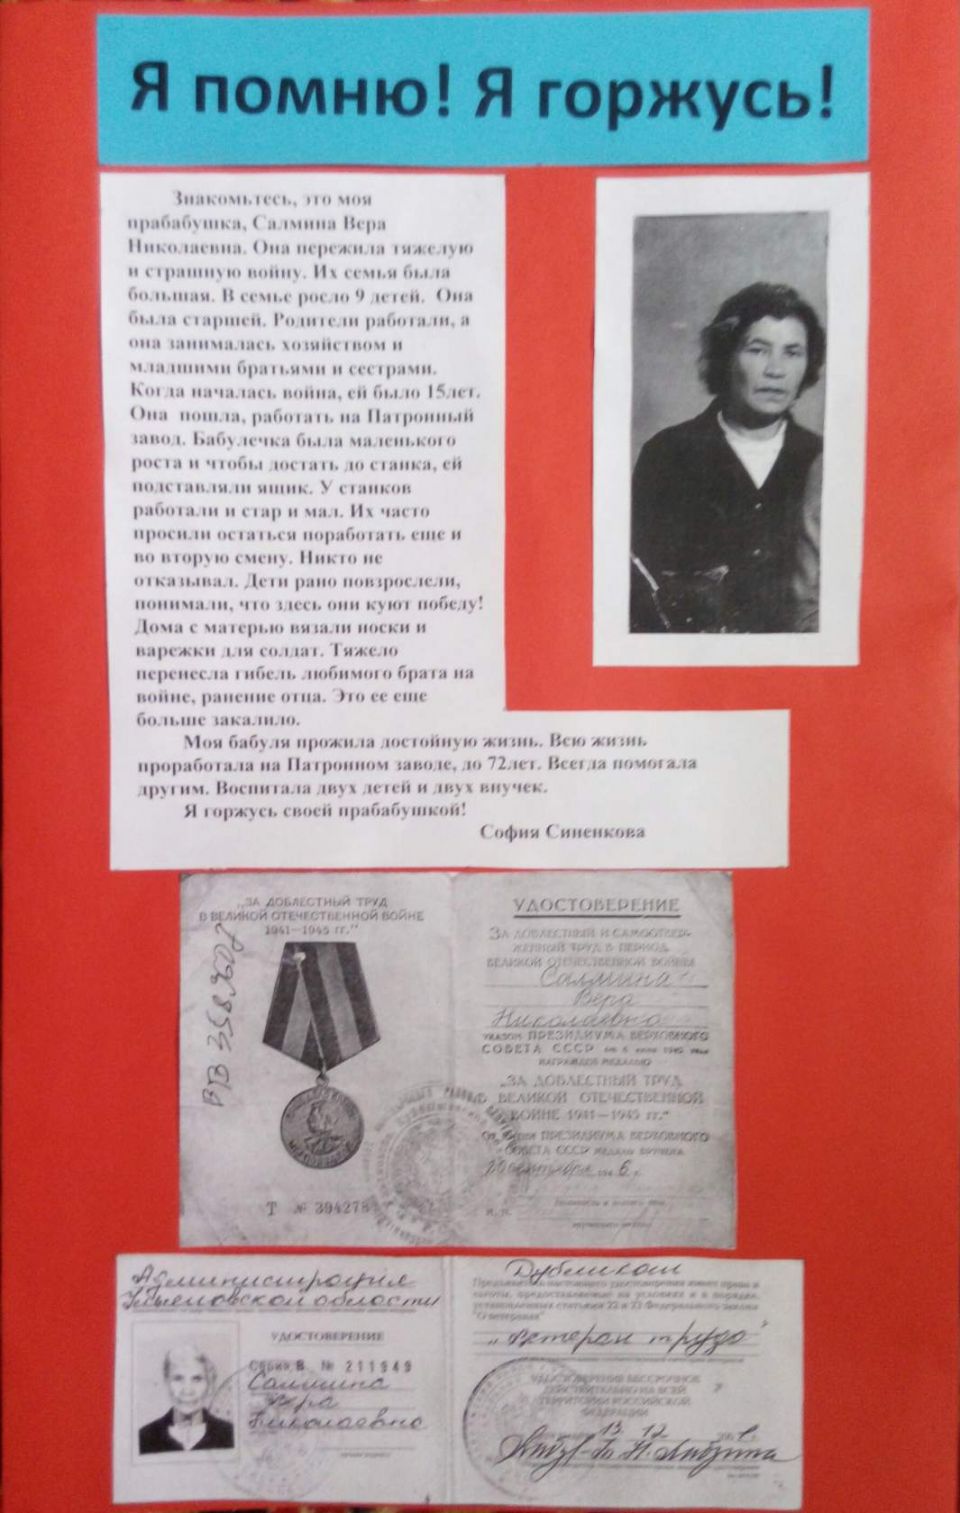 Я помню! Я горжусь!
Знакомьтесь, это моя
прабабушка, Салмина Вера
Николаевна. Она пережила тяжелую
и страшную войну. Их семья была
большая. В семье росло 9 детей. Она
была старшей. Родители работали, а
она занималась хозяйством и
младшими братьями и сестрами.
Когда началась война, ей было 15лет.
Она пошла, работать на Патронный
завод. Бабулечка была маленького
роста и чтобы достать до станка, ей
подставляли ящик. У станков
работали и стар и мал. Их часто
просили остаться поработать еще и
во вторую смену. Никто не
отказывал. Дети рано повзрослели,
понимали, что здесь они куют победу!
Дома с матерью вязали носки и
варежки для солдат. Тяжело
перенесла гибель любимого брата на
войне, ранение отца. Это ее еще
больше закалило.
Моя бабуля прожила достойную жизнь. Всю жизнь
проработала на Патронном заводе, до 72лет. Всегда помогала
другим. Воспитала двух детей и двух внучек.
Я горжусь своей прабабушкой!
София Синенкова
„ЗА ДОБЛЕСТНЫЙ ТРУД
В ВЕЛИКОЙ ОТЕЧЕСТВЕННОЙ ВОЙНЕ
1941—1945 гг."
Т № 394278
УДОСТОВЕРЕНИЕ
ЗА ДОБЛЕСТНЫЙ И САМООТВЕР-
ЖЕННЫЙ ТРУД В ПЕРИОД
ВЕЛИКОЙ ОТЕЧЕСТВЕННОЙ ВОЙНЫ
Салмина
Вера
Николаевна
УКАЗОМ ПРЕЗИДИУМА ВЕРХОВНОГО
СОВЕТА СССР от 6 июня 1945 года
НАГРАЖДЕН МЕДАЛЬЮ
„ЗА ДОБЛЕСТНЫЙ ТРУД
В ВЕЛИКОЙ ОТЕЧЕСТВЕННОЙ
ВОЙНЕ 1941—1945 гг."
От имени ПРЕЗИДИУМА ВЕРХОВНОГО
СОВЕТА СССР МЕДАЛЬ ВРУЧЕНА
Администрация
Ульяновской области
УДОСТОВЕРЕНИЕ
Серия В № 211949
Салмина
Вера
Николаевна
Дубликат
Предъявитель настоящего удостоверения имеет право и
льготы, предоставляемые на условиях и в порядке,
установленных статьями 22 и 23 Федерального закона
"О ветеранах"
„Ветеран труда"
УДОСТОВЕРЕНИЕ БЕССРОЧНОЕ
ДЕЙСТВИТЕЛЬНО НА ВСЕЙ
ТЕРРИТОРИИ РОССИЙСКОЙ
ФЕДЕРАЦИИ
13 12